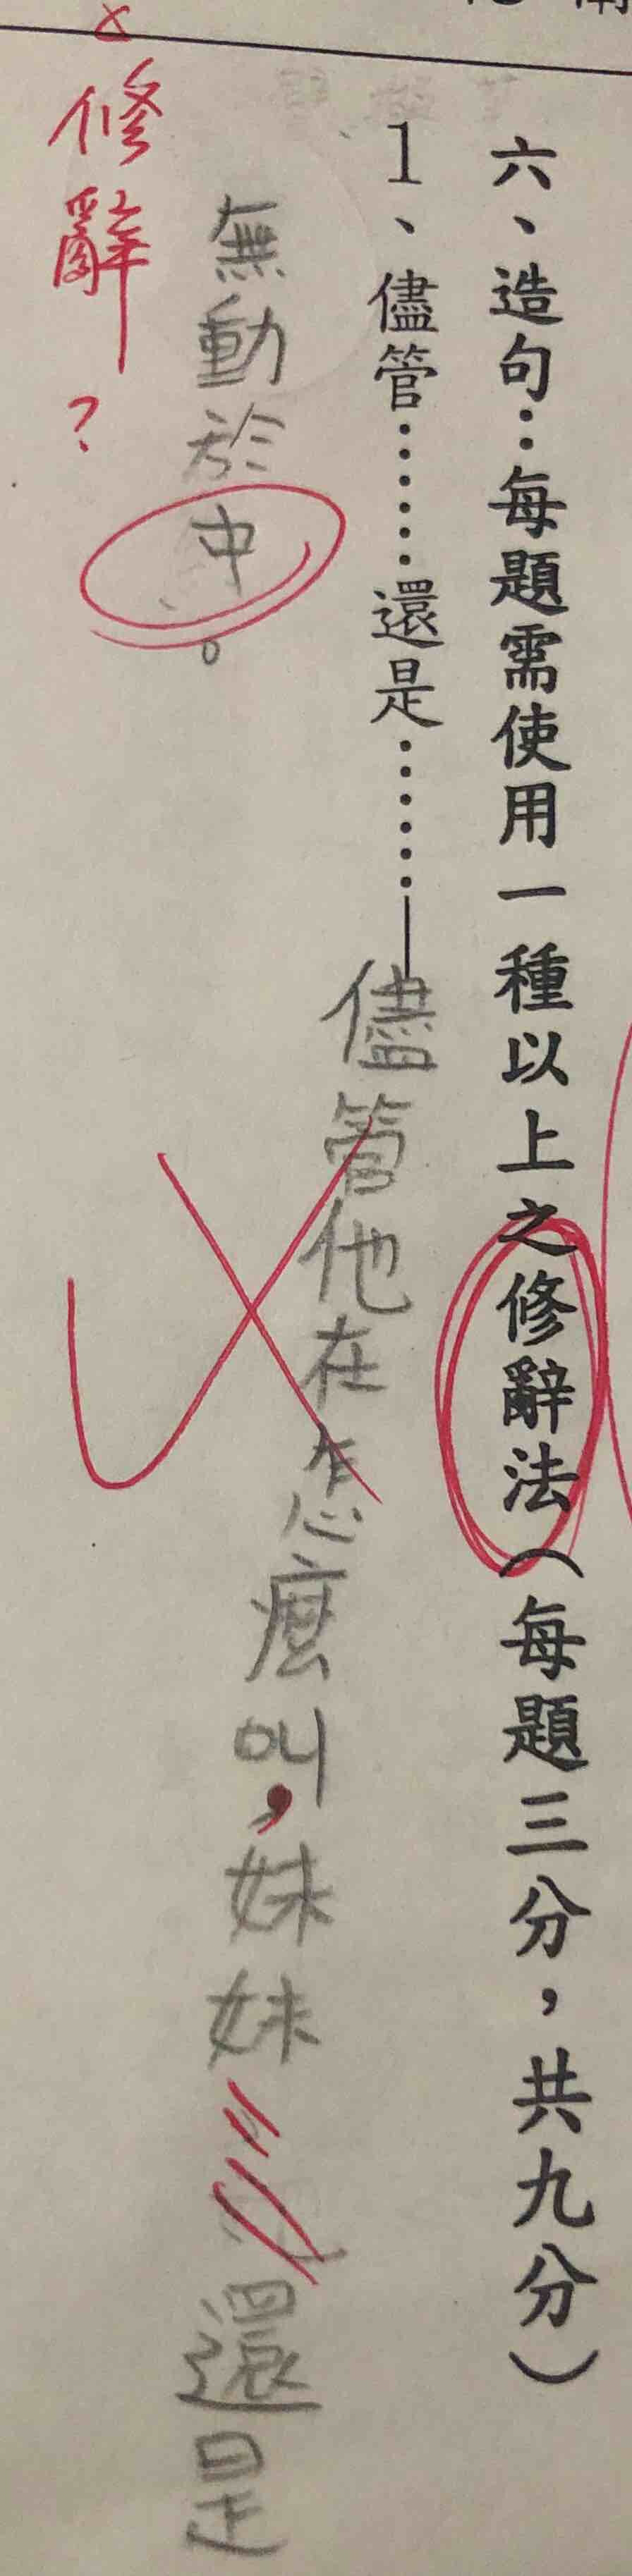 六、造句：每題需使用一種以上之修辭法（每題三分，共九分）
1、儘管……還是……—儘管他在怎麼叫，妹妹還是
無動於中。
×修辭？